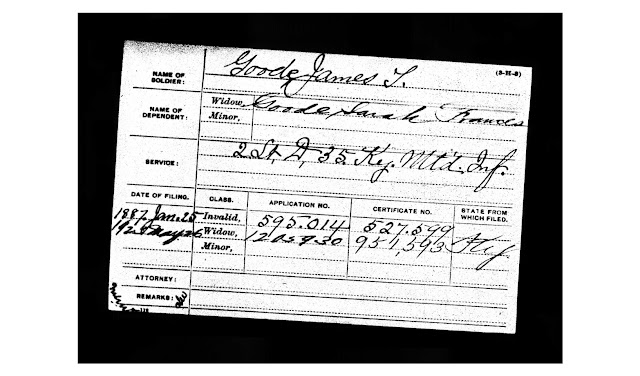 (3-H-3)
NAME OF SOLDIER: Goode, James T.
NAME OF DEPENDENT: Widow, Goode, Sarah Frances
Minor,
SERVICE: 2 Lt, D, 35 Ky. Mtd. Inf.
DATE OF FILING. CLASS. APPLICATION NO. CERTIFICATE NO. STATE FROM WHICH FILED.
1887 Jan. 25 Invalid, 595.014 527.599
May 26 Widow, 951,593 Ky
Minor,
ATTORNEY:
REMARKS: